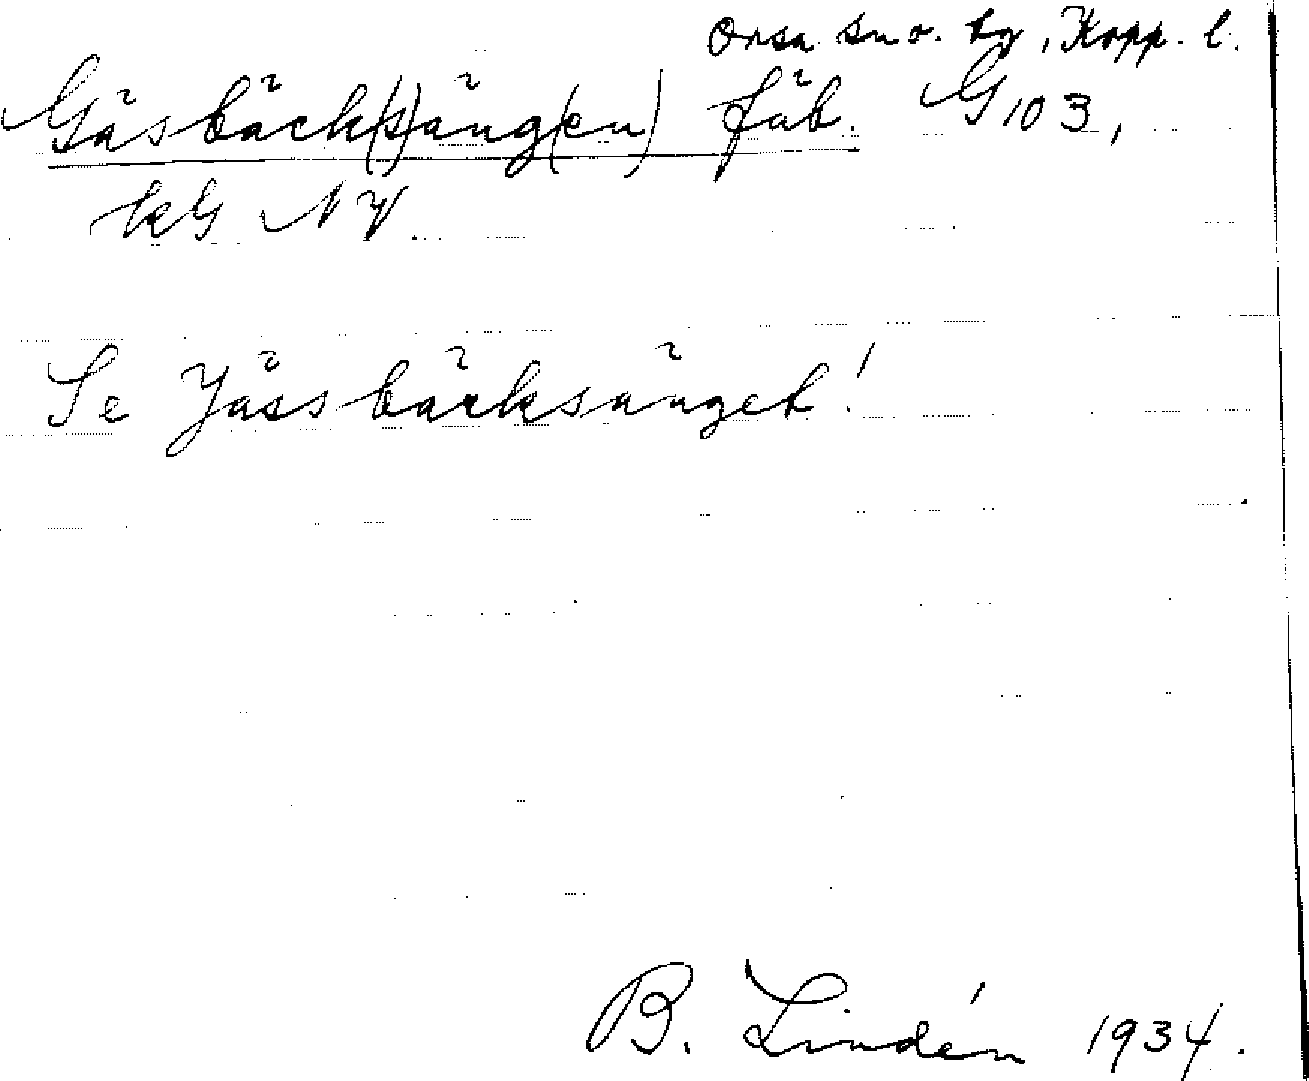 Orsa sn o. tg, Kopp. l.
Gåsbäck(s)äng(en) fäb. G 103,
kG NV.
Se Jässbäcksänget!
B. Lindén 1934.